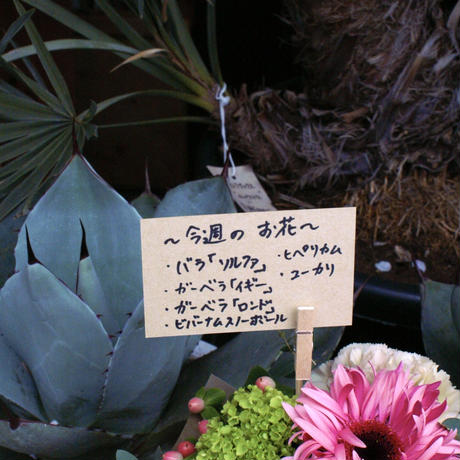 ～今週の お花～
・バラ「ソルファ」
・ガーベラ「イギー」
・ガーベラ「ロンド」
・ビバーナムスノーボール
・ヒペリカム
・ユーカリ